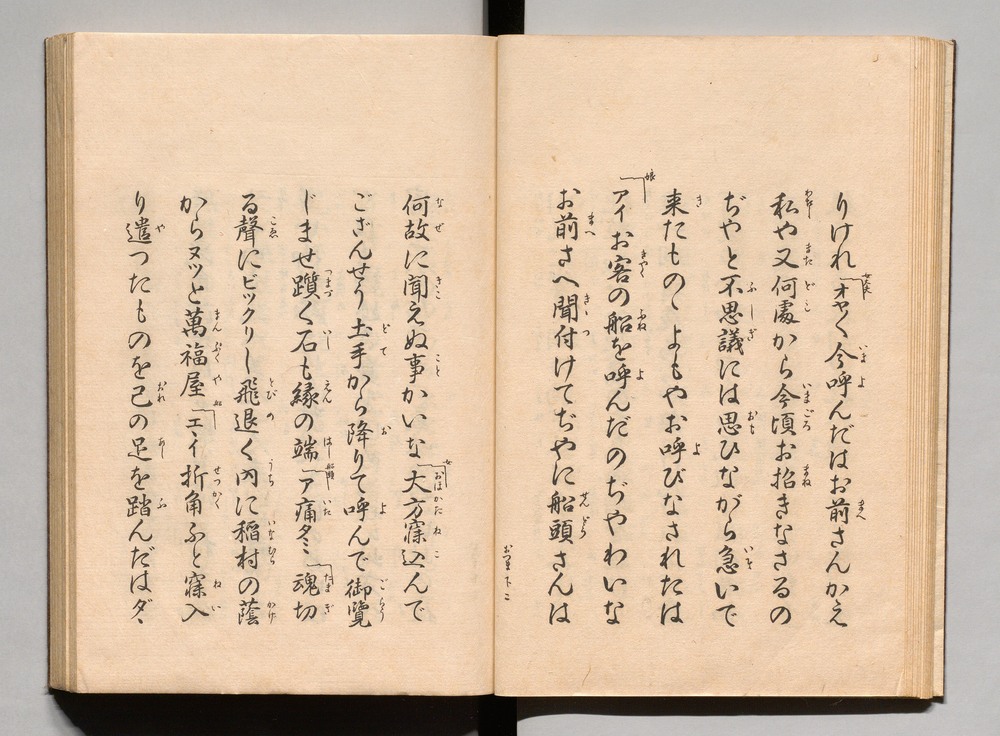 りけれ「オヤ〱今呼んだはお前さんかえ
私や又何處から今頃お招きなさるの
ぢやと不思議には思ひながら急いで
来たものゝよもやお呼びなされたは
娘「アイお客の船を呼んだのぢやわいな
お前さへ聞付けてぢやに船頭さんは
何故に聞えぬ事かいな 女「大方寐込んで
ござんせう土手から降りて呼んで御覽
じませ躓く石も縁の端 船頭「ア痛タヽ「魂切
る聲にビックリし飛退く内に稲村の蔭
からヌッと萬福屋「エイ折角ふと寐入
り遣つたものを己の足を踏んだはダヽ